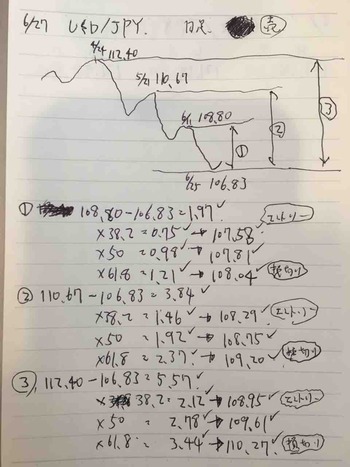 6/27 USD/JPY. 日足. 売
4/24 112.40
5/21 110.67
6/11 108.80
① ② ③
6/25 106.83
① 108.80-106.83=1.97✓ エントリー
×38.2=0.75✓→107.58✓
×50=0.98✓→107.81✓
×61.8=1.21✓→108.04✓ 損切り
② 110.67-106.83=3.84✓
×38.2=1.46✓→108.29✓ エントリー
×50=1.92✓→108.75✓
×61.8=2.37✓→109.20✓ 損切り
③ 112.40-106.83=5.57✓
×38.2=2.12✓→108.95✓ エントリー
×50=2.78✓→109.61✓
×61.8=3.44✓→110.27✓ 損切り